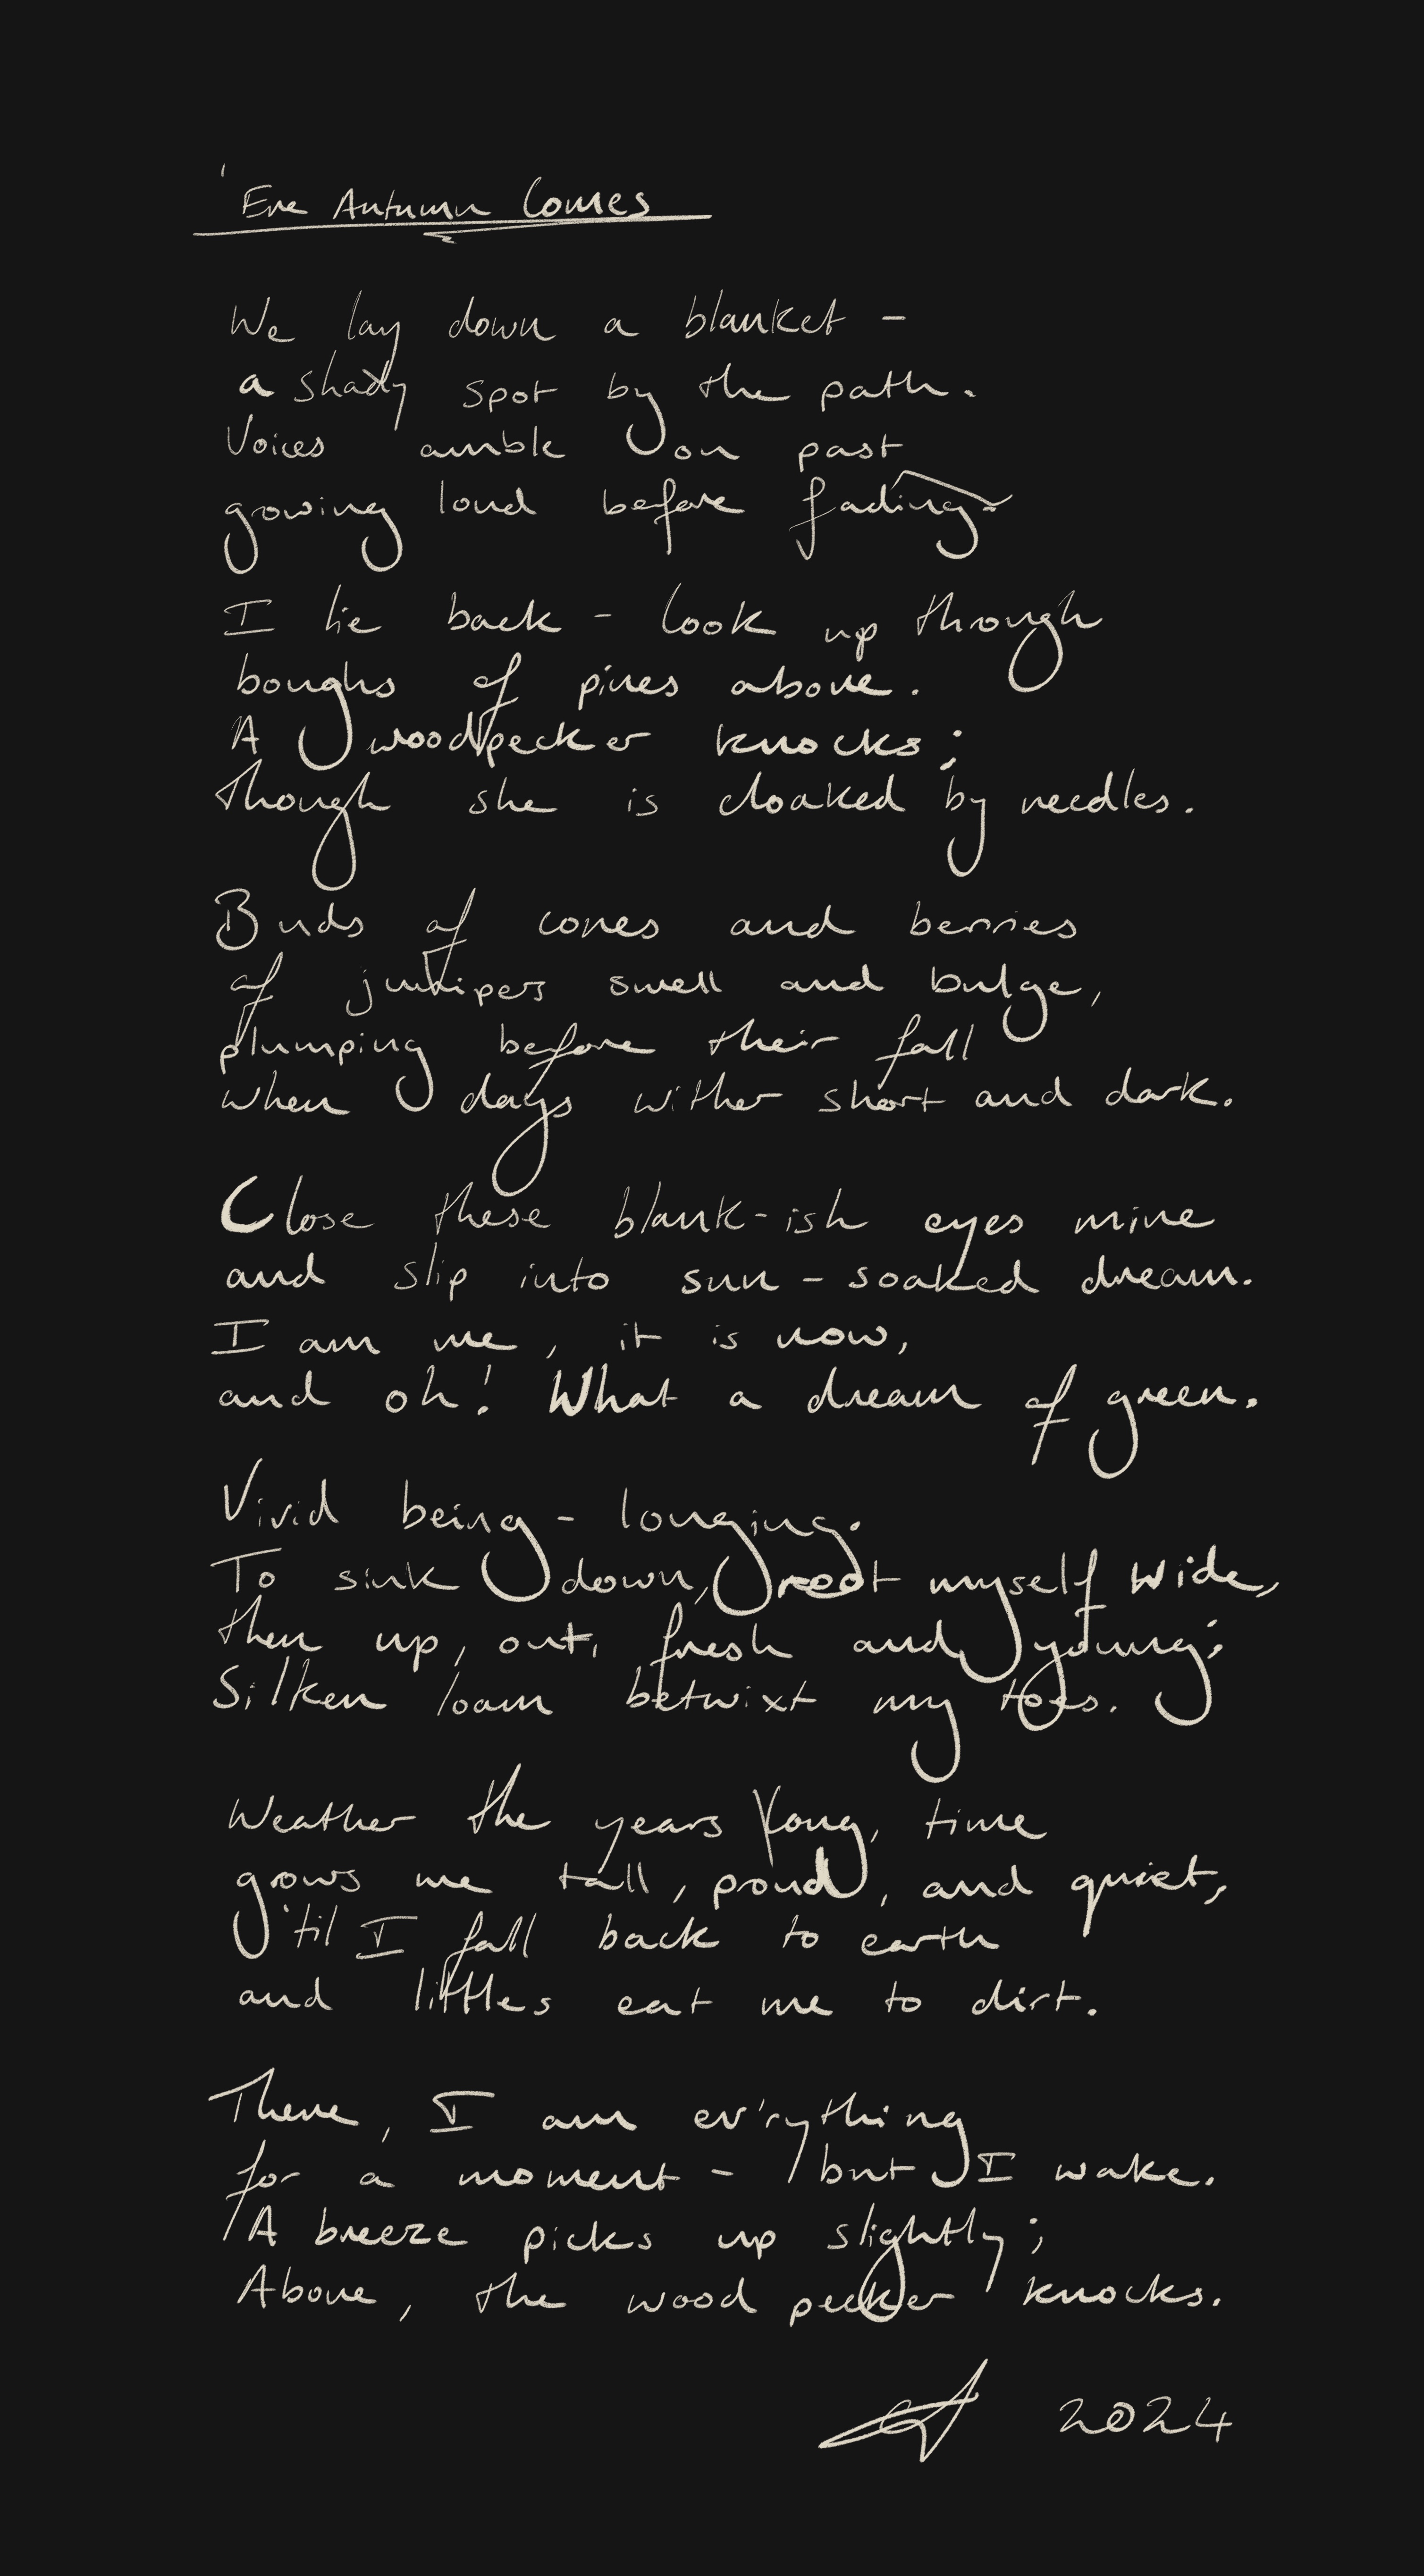 'Ere Autumn Comes
We lay down a blanket -
a shady spot by the path.
Voices amble on past
growing loud before fading.
I lie back - look up through
boughs of pines above.
A woodpecker knocks;
though she is cloaked by needles.
Buds of cones and berries
of junipers swell and bulge,
plumping before their fall
when days wither short and dark.
Close these blank-ish eyes mine
and slip into sun-soaked dream.
I am me, it is now,
and oh! What a dream of green.
Vivid being - longing.
To sink down, root myself wide,
then up, out, fresh and young;
Silken loam betwixt my toes.
Weather the years long, time
grows me tall, proud, and quiet,
'til I fall back to earth
and littles eat me to dirt.
There, I am ev'rything
for a moment - but I wake.
A breeze picks up slightly;
Above, the woodpecker knocks.
2024